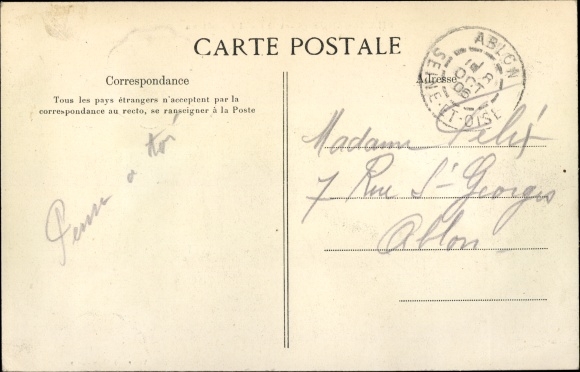 CARTE POSTALE
Correspondance
Tous les pays étrangers n'acceptent pas la
correspondance au recto, se renseigner à la Poste
Pense a toi
Adresse
ABLON
SEINE-ET-OISE
OCT
Madame Félix
7 Rue St-Georges
Ablon